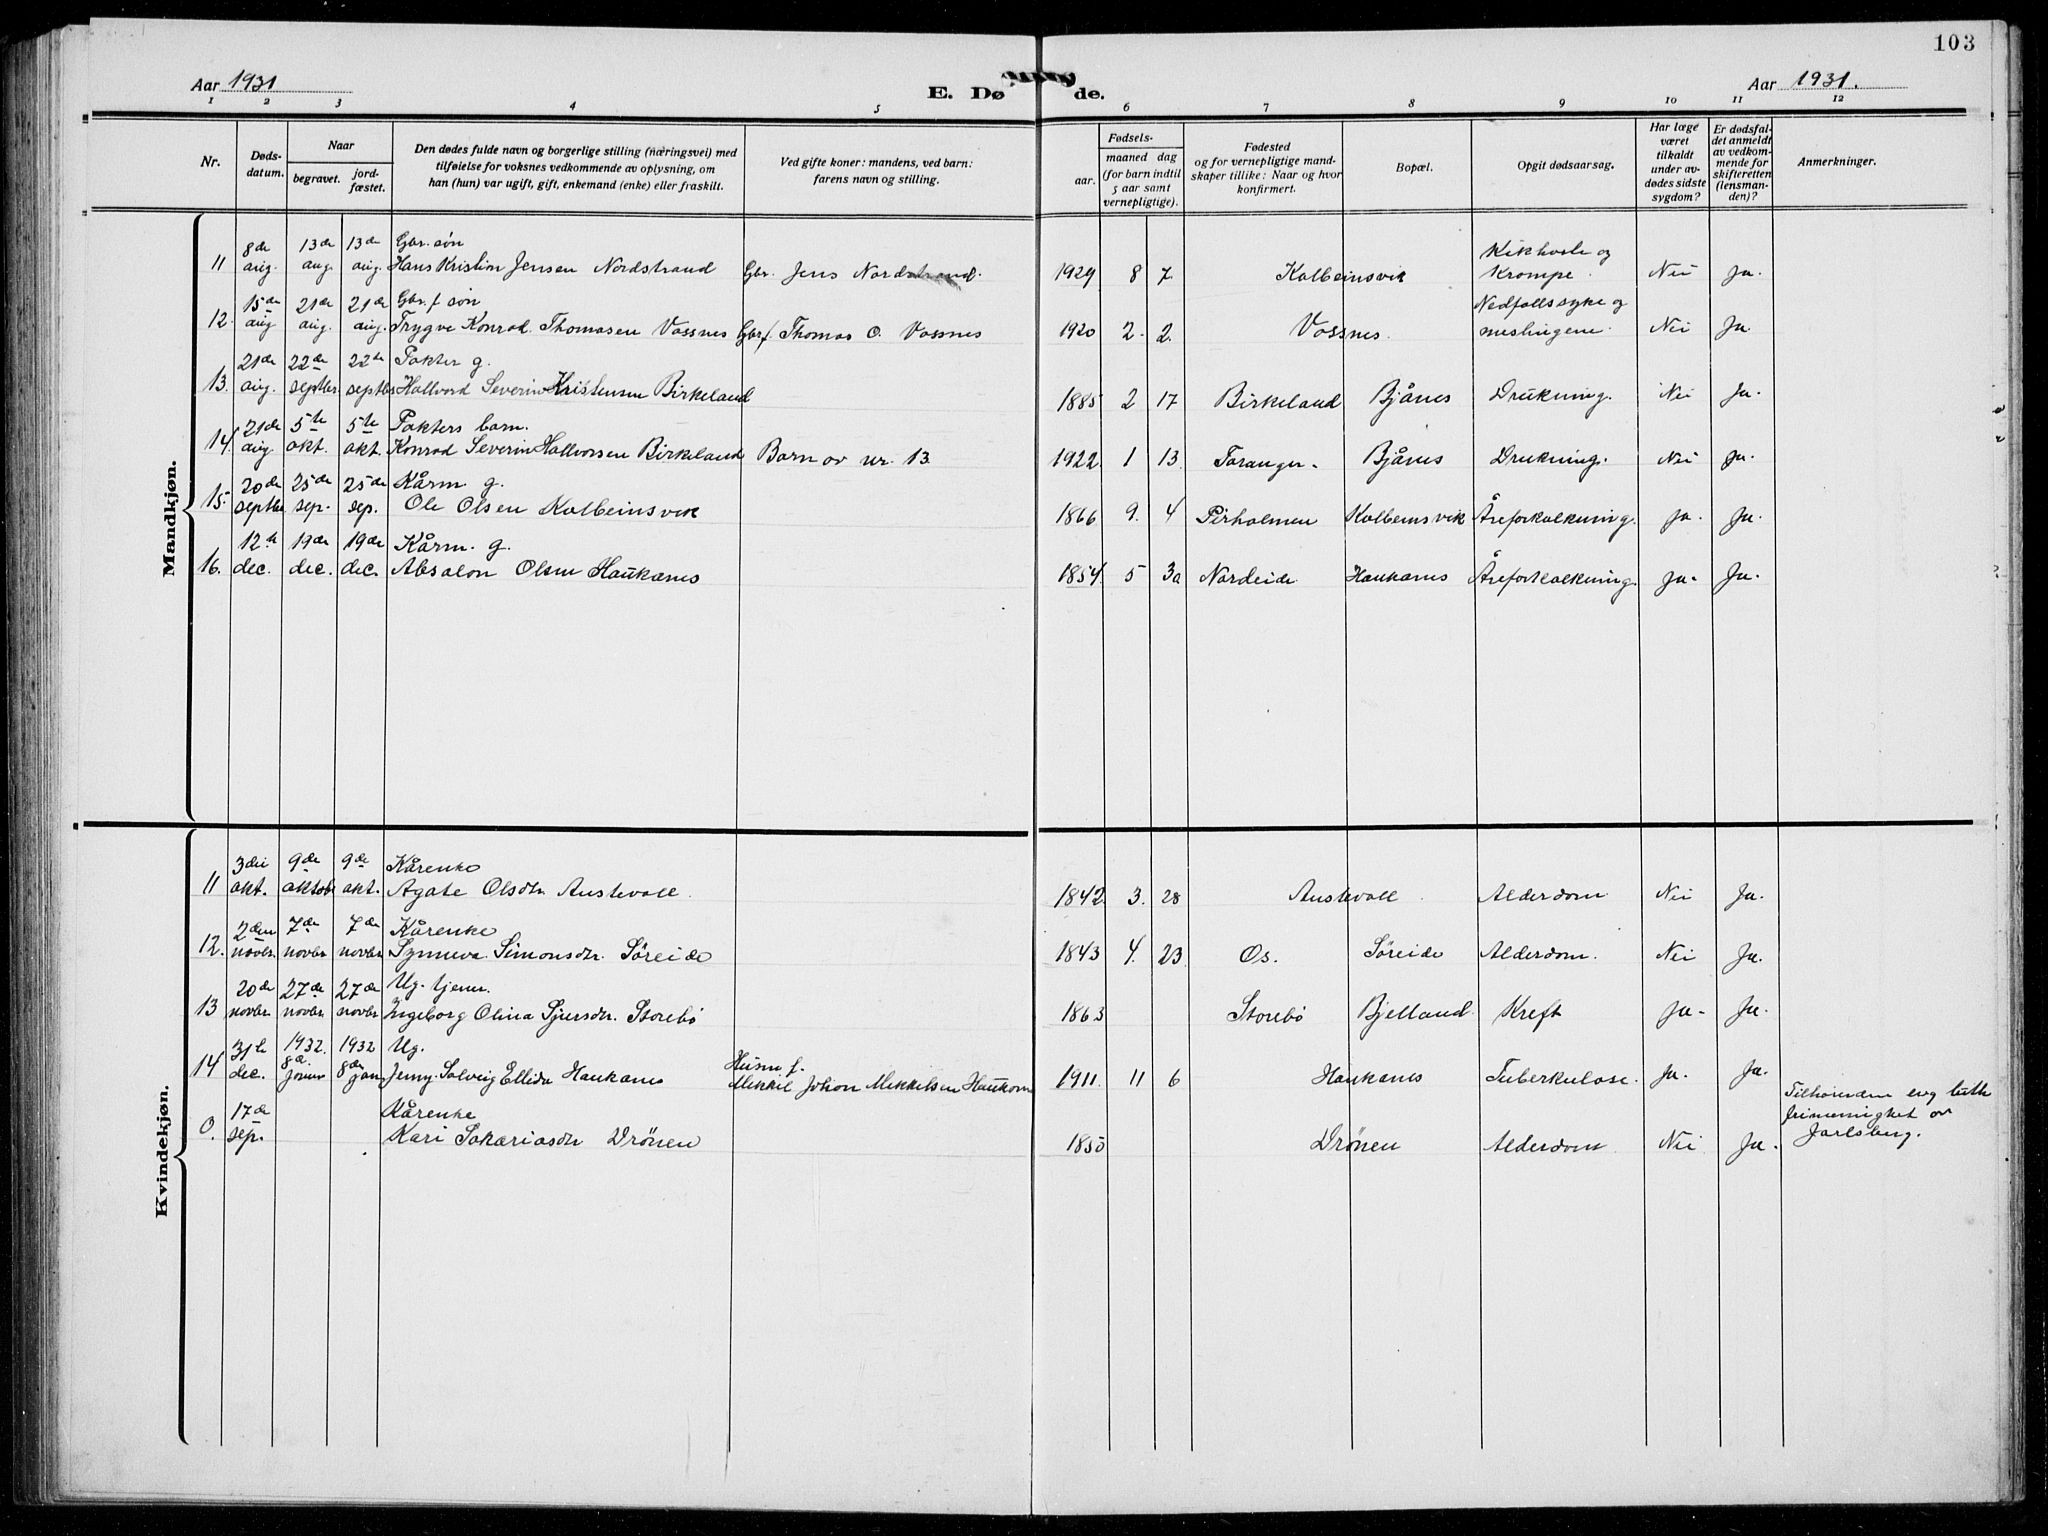 103
Aar 1931
E. Dø de.
Aar 1931.
1 2 3 4 5 6 7 8 9 10 11 12
Nr.
Døds-
datum.
Naar
begravet.
jord-
fæstet.
Den dødes fulde navn og borgerlige stilling (næringsvei) med
tilføielse for voksnes vedkommende av oplysning, om
han (hun) var ugift, gift, enkemand (enke) eller fraskilt.
Ved gifte koner: mandens, ved barn:
farens navn og stilling.
Fødsels-
aar.
maaned dag
(for barn indtil
5 aar samt
vernepligtige).
Fødested
og for vernepligtige mand-
skaper tillike: Naar og hvor
konfirmert.
Bopæl.
Opgit dødsaarsag.
Har læge
været
tilkaldt
under av-
dødes sidste
sygdom?
Er dødsfal-
det anmeldt
av vedkom-
mende for
skifteretten
(lensman-
den)?
Anmerkninger.
Mandkjøn.
8de 13de 13de Gbr. søn Kikhoste og
11 aug. aug. aug. Hans Kristian Jensen Nordstrand Gbr. Jens Nordstrand. 1929 8 7 Kolbeinsvik Krampe. Nei Ja.
15de 21de 21de Gbr.f søn Nedfallssyke og
12. aug aug. aug. Trygve Konrad Thomasen Vassnes Gbrf. Thomas O. Vassnes 1920 2. 2. Vassnes. meslingene. Nei Ja.
21de 22de 22de Pakter g.
13. aug. septbr. septbr Hallvard Severin Kristensen Birkeland 1885 2 17 Birkeland Bjånes Drukning. Nei Ja.
21de 5te 5te Pakters barn.
14. aug. okt. okt. Konrad Severin Hallvorsen Birkeland Barn av nr. 13 1922. 1 13. Taranger. Bjånes Drukning. Nei Ja.
20de 25de 25de Kårm. g.
15. septbr sep. sep. Ole Olsen Kolbeinsvik 1866 9. 4 Pirholmen Kolbeinsvik Åreforkalkning. Ja. Ja.
12te 19de 19de Kårm. g.
16. dec. dec. dec. Absalon Olsen Haukanes 1854 5 30 Nordeide Haukanes Åreforkalkning. Ja. Ja.
Kvindekjøn.
3die 9de 9de Kårenke
11 okt. oktob okt. Agate Olsdtr. Austevoll. 1842. 3. 28 Austevoll. Alderdom. Nei Ja.
2den 7de 7de Kårenke
12. novbr. novbr novbr Synneva Simonsdtr. Søreide 1843 4. 23. Os. Søreide Alderdom. Nei Ja.
20de 27de 27de Ug. tjener.
13 novbr. novbr novbr Ingeborg Olina Sjursdtr. Storebø 1863 Storebø Bjelland. Kreft Ja. Ja.
31te 1932. 1932 Ug. Husm f.
14 dec. 8de januar 8de jan. Jenny Solveig Ellida Haukanes Mikkel Johan Mikkelsen Haukanes 1911. 11 6 Haukanes Tuberkulose. Ja. Ja.
17de Kårenke Tilhørende evg luth
0. sep. Kari Sakariasdtr Drönen 1850 Drönen Alderdom. Nei Ja. frimenighet av
Jarlsberg.